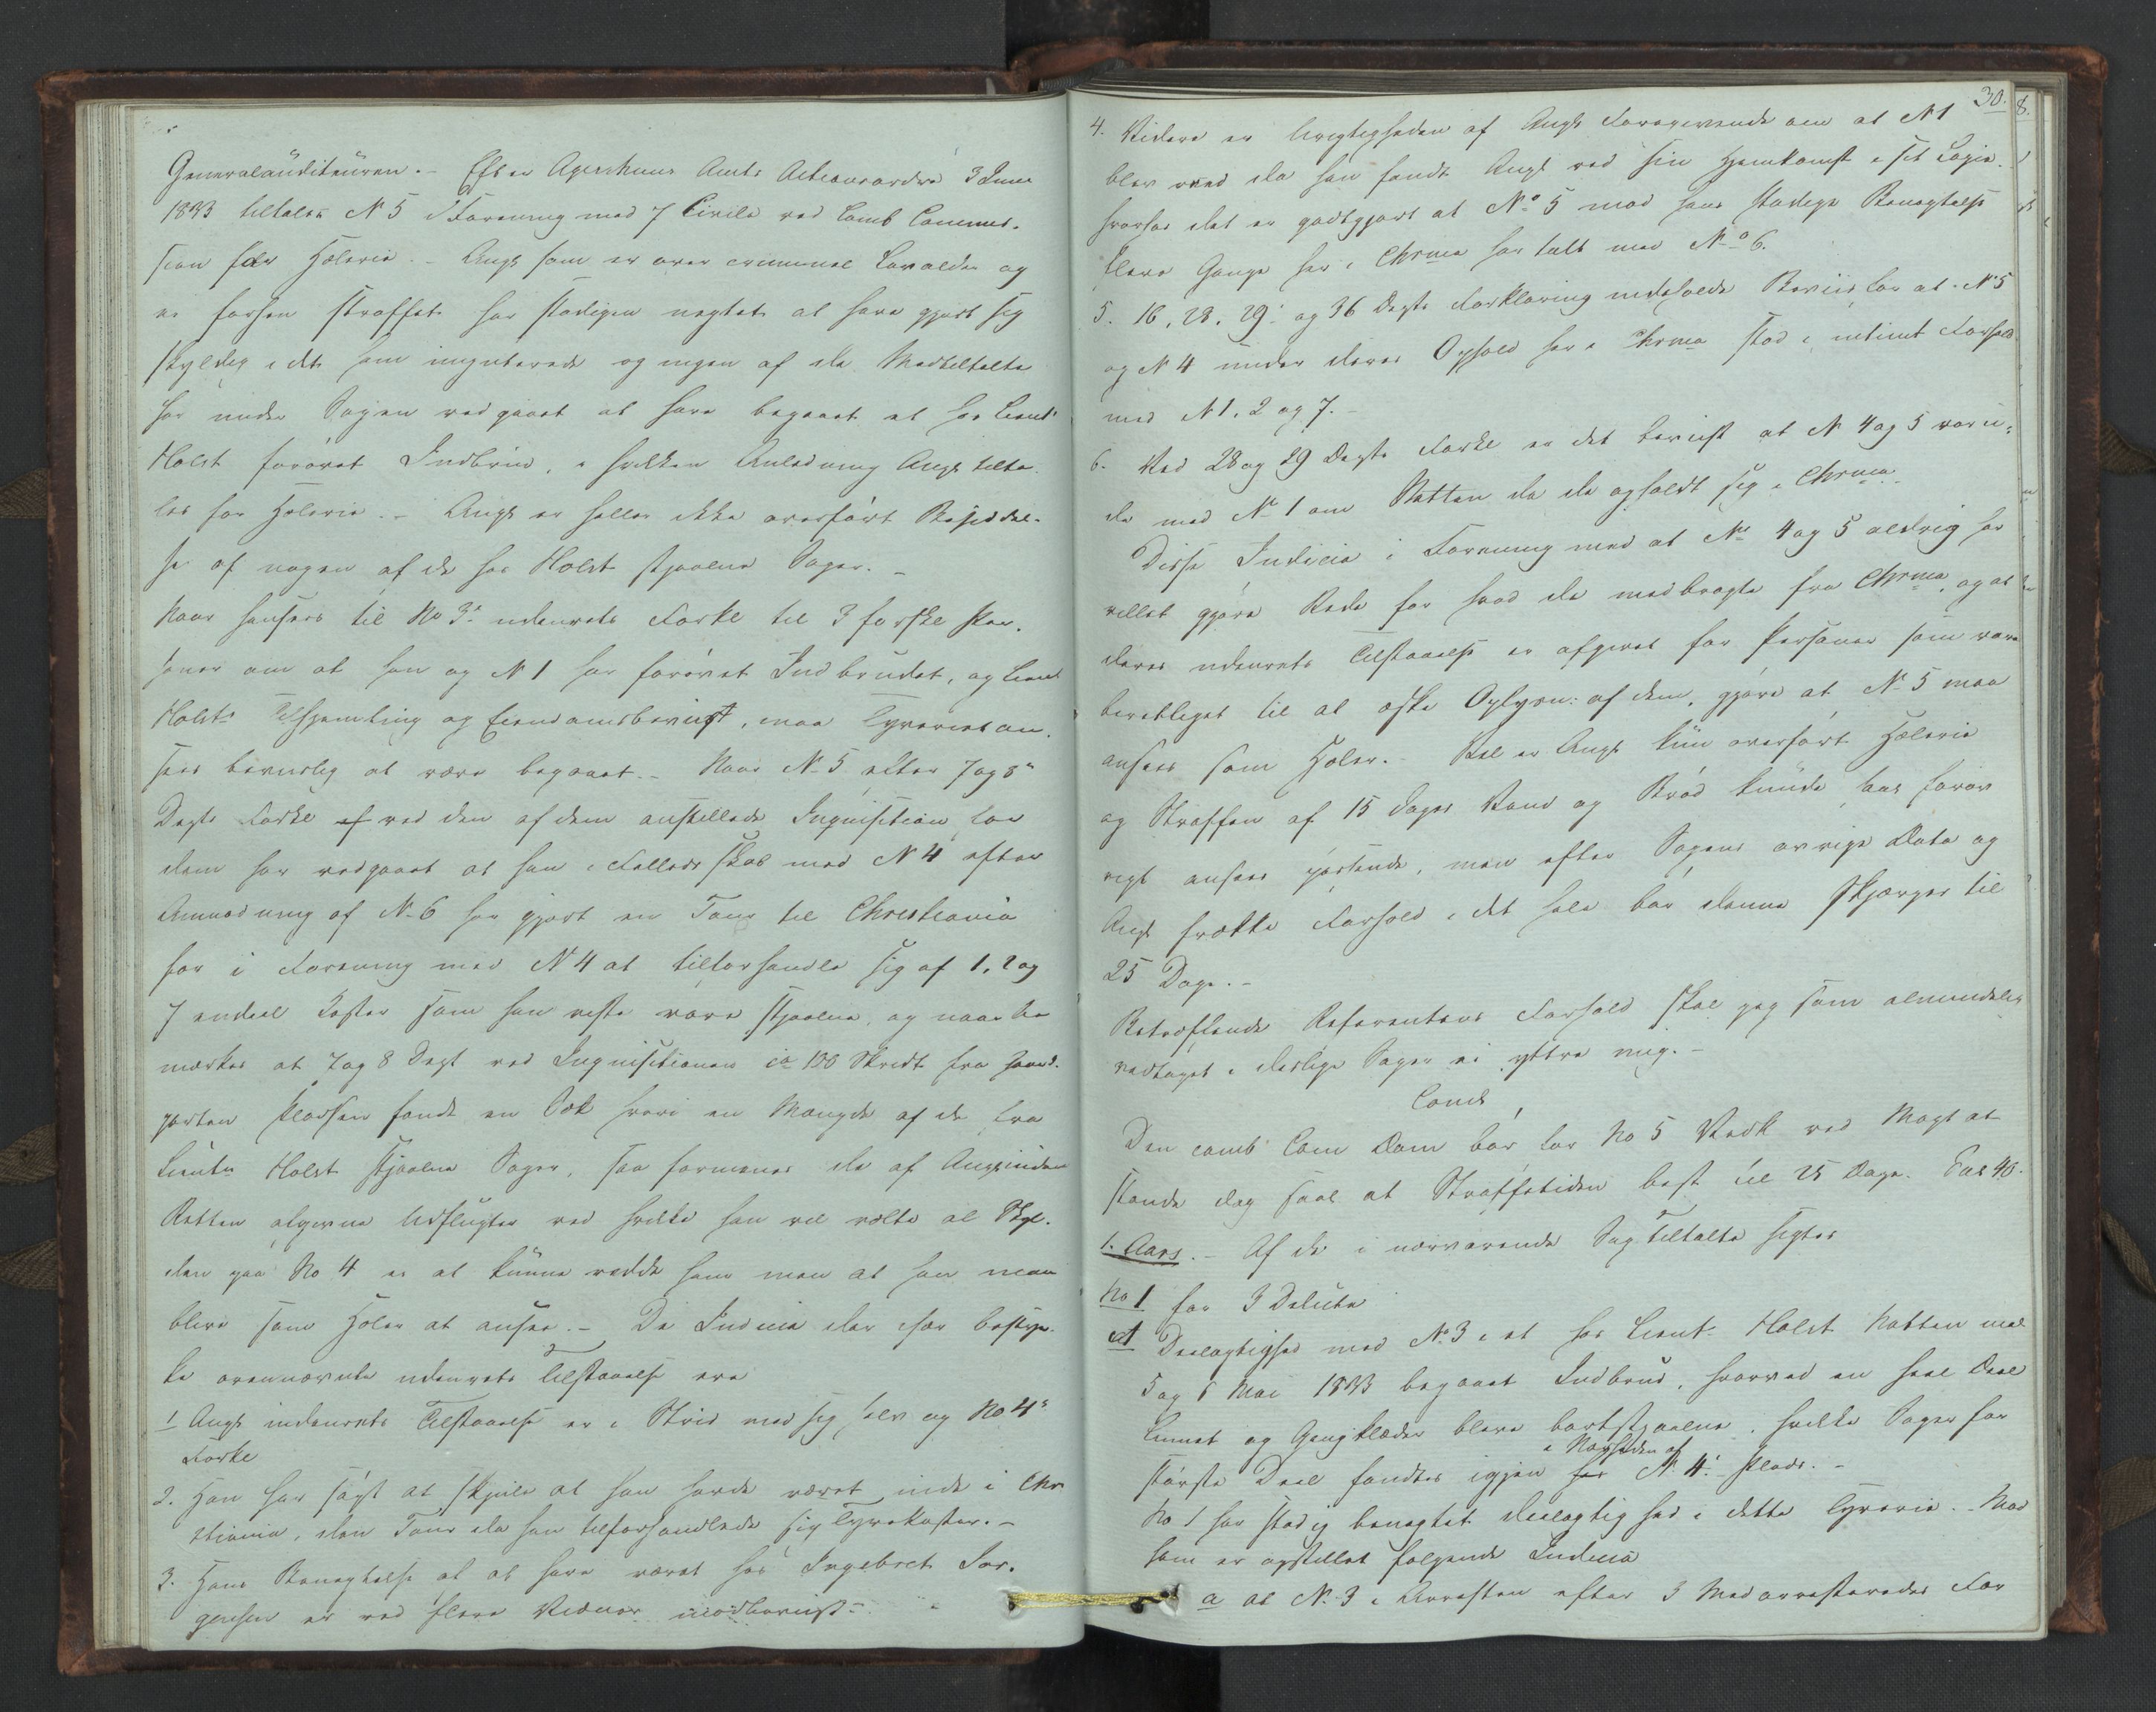 Generalauditeuren. – Efter Agershuus Amts Actionsordre 3 Juni
1833 tiltales N 5 i Forening med 7 Civile ved Comb Commis-
sion for Hæleri. – Angk som er over criminel Lavalder og
ei forhen straffet har stadigen negtet at have gjort sig
skyldig i det ham imputerede og ingen af de Medtiltalte
har under Sagen vedgaaet at have begaaet et hos Lieut
Holst forøvet Indbrud, i hvilken Anledning Angk tilta-
les for Hæleri. – Angk er heller ikke overført Besiddel-
se af nogen af de hos Holst stjaalne Sager. –
Naar henses til No 3s udenrets Forkl til 3 forskl Per-
soner om at han og N 1 har forøvet Indbrudet, og Lieut
Holsts Tilhjemling og Eiendomsbeviist, maa Tyveriet an-
sees beviislig at være begaaet. – Naar N 5 efter 7 og 8
Vegts Forkl ved den af dem anstillede Inqvisition for
dem har vedgaaet at han i Fælledsskab med N 4 efter
Anmodning af N 6 har gjort en Tour til Christiania
for i Forening med N 4 at tilforhandle sig af 1, 2 og
7 endeel Koster som han viste vare stjaalne, og naar be
mærkes at 7 og 8 Vegt ved Inqvisitionen ca 100 Skridt fra
Pladsen fandt en Sæk hvori en Mængde af de fra
Lieutn Holst stjaalne Sager, saa formenes de af Angk inden
Retten afgivne Udflugter ved hvilke han vil vælte al Skyl-
den paa No 4 ei at kunne redde ham men at han maa
blive som Hæler at ansee. – De Indicia der især bestyr-
ke ovennævnte udenrets Tilstaaelse ere
1 Angk indenrets Tilstaaelse er i Strid med sig selv og No 4s
Forkl
2. Han har søgt at skjule at han havde været inde i Chri
stiania, den Tour da han tilforhandlede sig Tyvekoster. –
3. Hans Benegtelse af at have været hos Ingebret Jør-
gensen er ved flere Vidner modbeviist –
30.
4. Videre er Urigtigheden af Angks Foregivende om at N 1
blev vred da han fandt Angk ved sin Hjemkomst i sit Logie.
hvorhos det er godtgjort at No 5 mod hans stadige Benegtelse
flere Gange her i Chrnia har talt med No 6.
5. 16, 28, 29 og 36 Vegts Forklaring indeholde Beviis for at N 5
og N 4 under deres Ophold her i Chrnia stod i intimt Forhold
med N 1, 2 og 7. –
6. Ved 28 og 29 Vegts Forkl er det beviist at N 4 og 5 var u-
de med N 1 om Natten da de opholdt sig i Chrnia
Disse Indicia i Forening med at No 4 og 5 aldrig har
villet gjøre Rede for hvad de medbragte fra Chrnia, og at
deres udenrets Tilstaaelse er afgivet for Personer som vare
berettiget til at æske Oplysn: af dem, gjøre at N 5 maa
ansees som Hæler. – Vel er Angk kun overført Hæleri
og Straffen af 15 Dages Vand og Brød kunde saa forøv
rigt ansees passende, men efter Sagens øvrige Data og
Angk frække Forhold i det hele bør denne skjærpes til
25 Dage. –
Betræffende Referentens Forhold skal jeg som almindelig
vedtaget i deslige Sager ei yttre mig. –
Concl
Den comb Com Dom bør for No 5 Vedk ved Magt at
stande dog saal at Straffetiden best til 25 Dage.
1. Aars. – Af de i nærværende Sag Tiltalte sigtes
No 1 for 3 Delicta
A Deelagtighed med No 3 i et hos Lieut Holst Natten mel
5 og 6 Mai 1833 begaaet Indbrud, hvorved en heel Deel
Linnet og Gangklæder bleve bortstjaalne, hvilke Sager for
i Nærheden af
største Deel fandtes igjen hos N 4s Plads. –
No 1 har stadig benegtet Deelagtighed i dette Tyverie. – Mod
ham er opstillet følgende Indicia
a at N. 3 i Arresten efter 3 Medarresteredes For